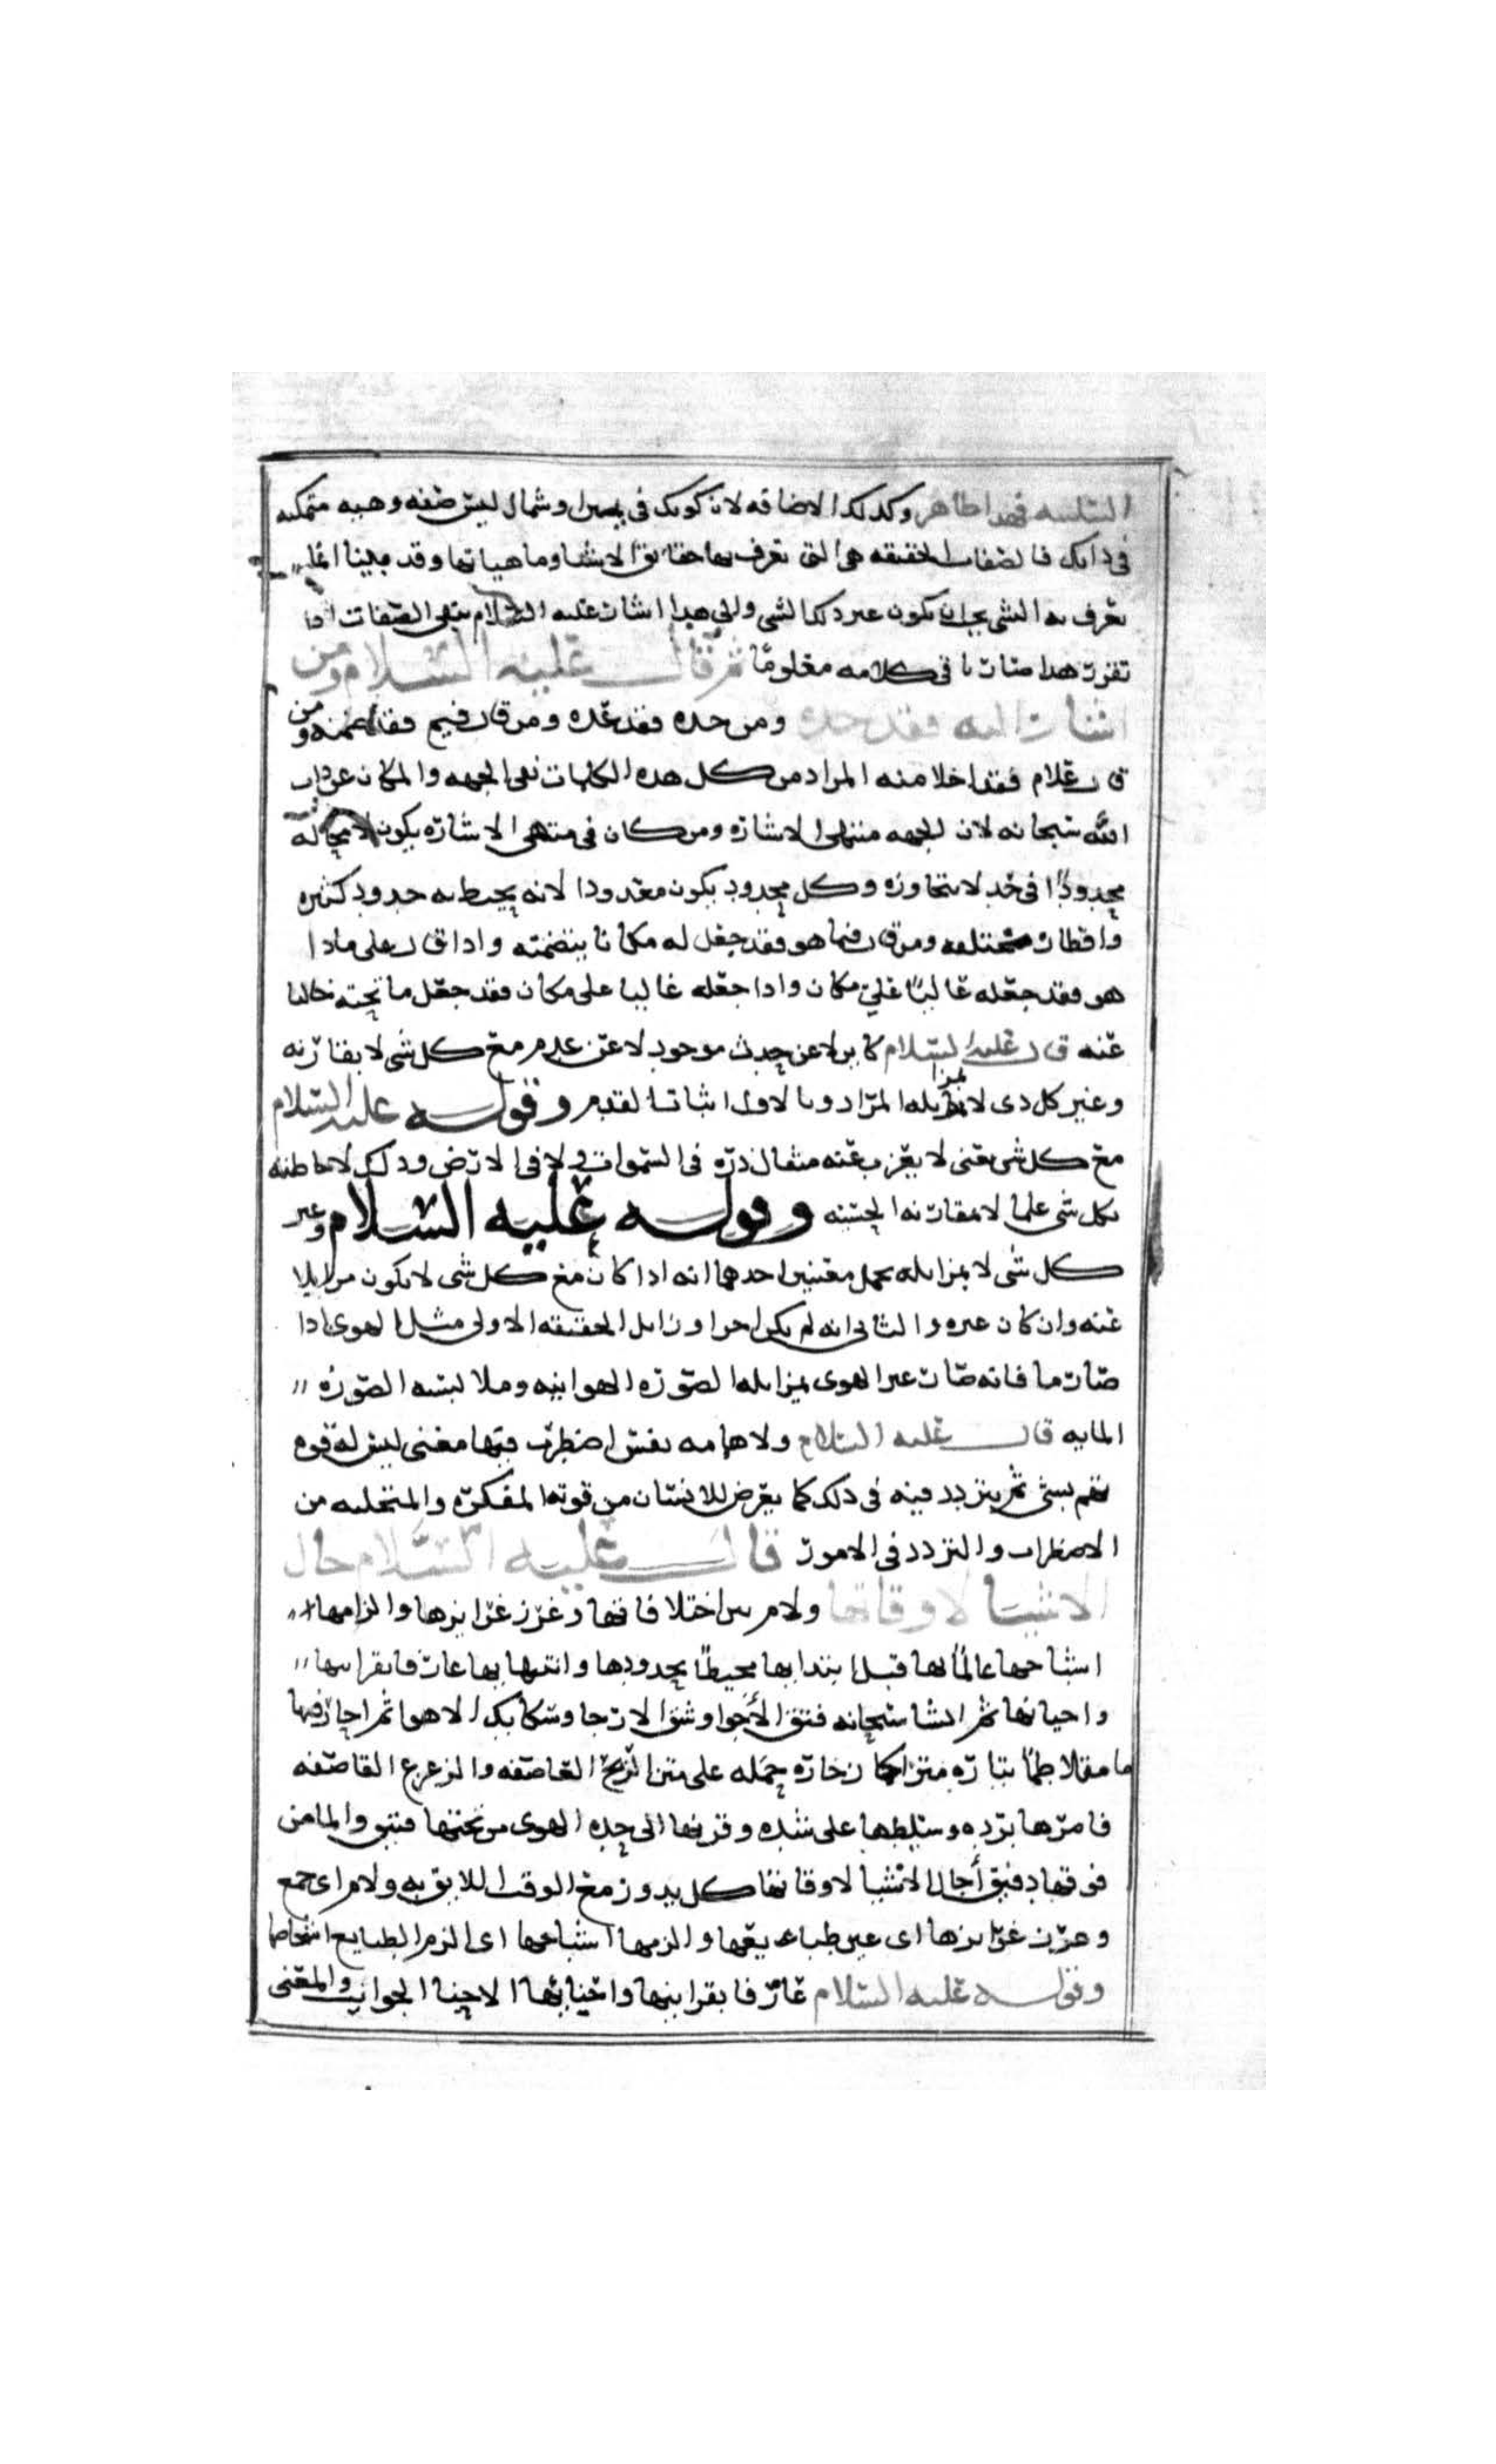 السلبيه فهذا ظاهر وكذلك الاضافه لان كونك في يمين او شمال ليس صفه وهيه متمكنه
في ذاتك فالصفات الحقيقه هي التي تعرف بها حقايق الاشيا وماهياتها وقد بينا ان ما
تعرف به الشي يجب ان يكون غير ذلك الشي والى هذا اشار عليه السلام بنفي الصفات اذا
تقرر هذا صار باقي كلامه معلوما ثم قال عليه السلام ومن
اشار اليه فقد حده ومن حده فقد عده ومن قال فيم فقد ضمنه ومن
قال علام فقد اخلا منه المراد من كل هذه الكلمات نفي الجهه والمكان عن ذات
الله سبحانه لان الجهه منتهى الاشاره ومن كان في منتهى الاشاره يكون لا محاله
محدودا في حد لا يتجاوزه وكل محدود يكون معدودا لانه يحيط به حدود كثيره
واقطار مختلفه ومن قال فيما هو فقد جعل له مكانا يتضمنه واذا قال على ماذا
هو فقد جعله غالبا على مكان واذا جعله غالبا على مكان فقد جعل ما تحته خاليا
عنه قال عليه السلام كاين لا عن حدث موجود لا عن عدم مع كل شي لا بمقارنه
وغير كل ذي لا بمزايله المراد وبالاول اثبات القدم وقوله عليه السلام
مع كل شي يعني لا يعزب عنه مثقال ذره في السموات ولا في الارض وذلك لاحاطته
بكل شي علما لا بمقارنه الجثيه وقوله عليه السلام وغير
كل شي لا بمزايله يحمل معنيين احدهما انه اذا كان مع كل شي لا يكون مزايلا
عنه وان كان غيره والثاني انه لم يكن اخرا وزايل الحقيقه الاولى مثل الهوى اذا
صار ما فانه صار غير الهوى بمزايله الصوره الهوائيه وملابسه الصوره
المايه قال عليه السلام ولا همامه نفس اضطرب فيها معنى ليس له قوه
تهم بشي ثم يتردد فيه في ذلك كما يعرض للانسان من قوته المفكره والمتخيله من
الاضطراب والتردد في الامور قال عليه السلام حال
الاشيا لاوقاتها ولام بين اختلافاتها وغرز غرايزها والزامها
اشباحها عالما بها قبل ابتدايها محيطا بحدودها وانتهايها عارفا بقراينها
واحيانها ثم انشا سبحانه فتق الاجوا وشق الارجا وسكايك الاهوا ثم اجاز فيها
ما متلاطما تياره متراكما زخاره حمله على متن الريح العاصفه والزعزع القاصفه
فامرها برده وسلطها على شده وقرنها الى حده الهوى من تحتها فتيق والما من
فوقها دفيق أجال الاشيا لاوقاتها كل يدور مع الوقت اللايق به ولام اي جمع
وغرز غرايزها اي عين طبايعها والزمها اشباحها اي الزم الطبايع اشخاصها
وقوله عليه السلام عارفا بقراينها واحيائها الاحنا الجوانب والمعنى